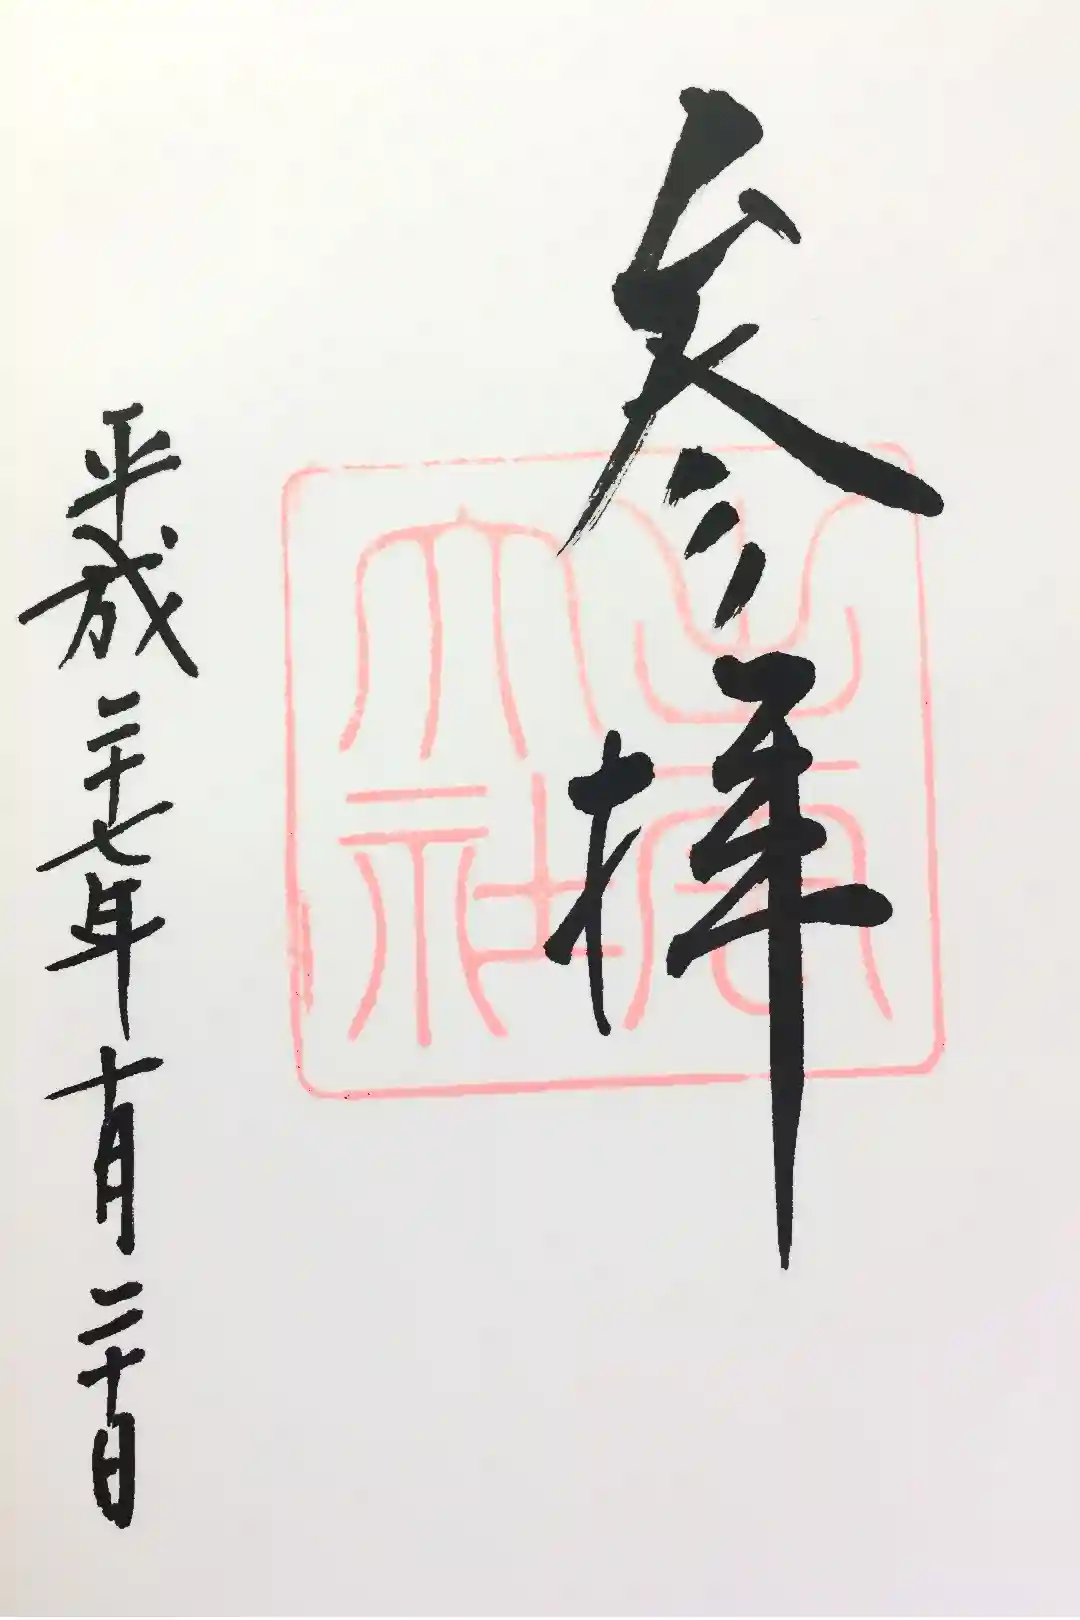 参拝
出雲大社
平成二十七年十月二十日